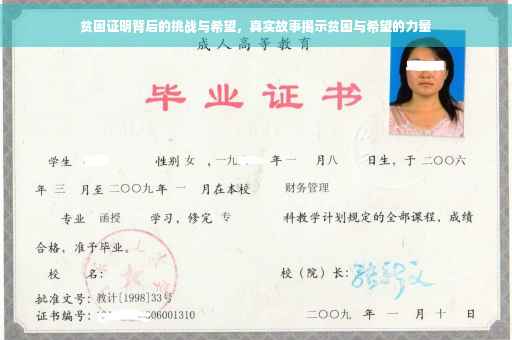 贫困证明背后的挑战与希望，真实故事揭示贫困与希望的力量
成人高等教育
毕业证书
学生 性别 女 ，一九 年 一 月 八 日生，于 二〇〇六
年 三 月至 二〇〇九 年 一 月在本校 财务管理
专业 函授 学习，修完 专 科教学计划规定的全部课程，成绩
合格，准予毕业。
校 名： 校（院）长：
批准文号：教计[1998]33号
证书编号：10 606001310 二〇〇九 年 一 月 十 日